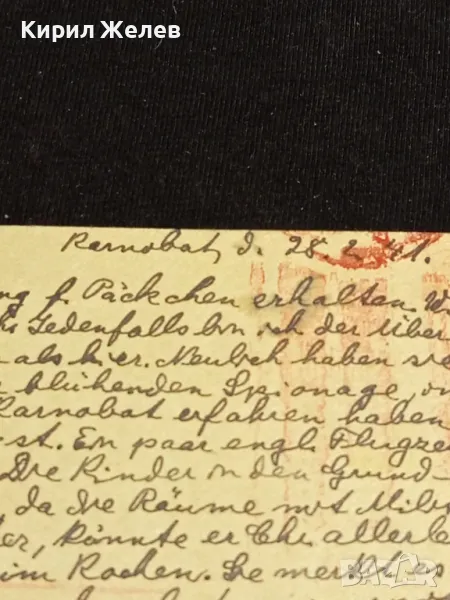 Кирил Желев
Karnobat, d. 28.2.41.
f. Päckchen erhalten. W
Jedenfalls bin ich der Über
als hier. Neulich haben sie
blühenden Spionage, in
Karnobat erfahren haben
ist. Ein paar engl. Flugze
Die Kinder in den Grund-
, da die Räume mit Milit
er, könnte er Ehr allerle
im Rachen. Sie merkt es
bazar